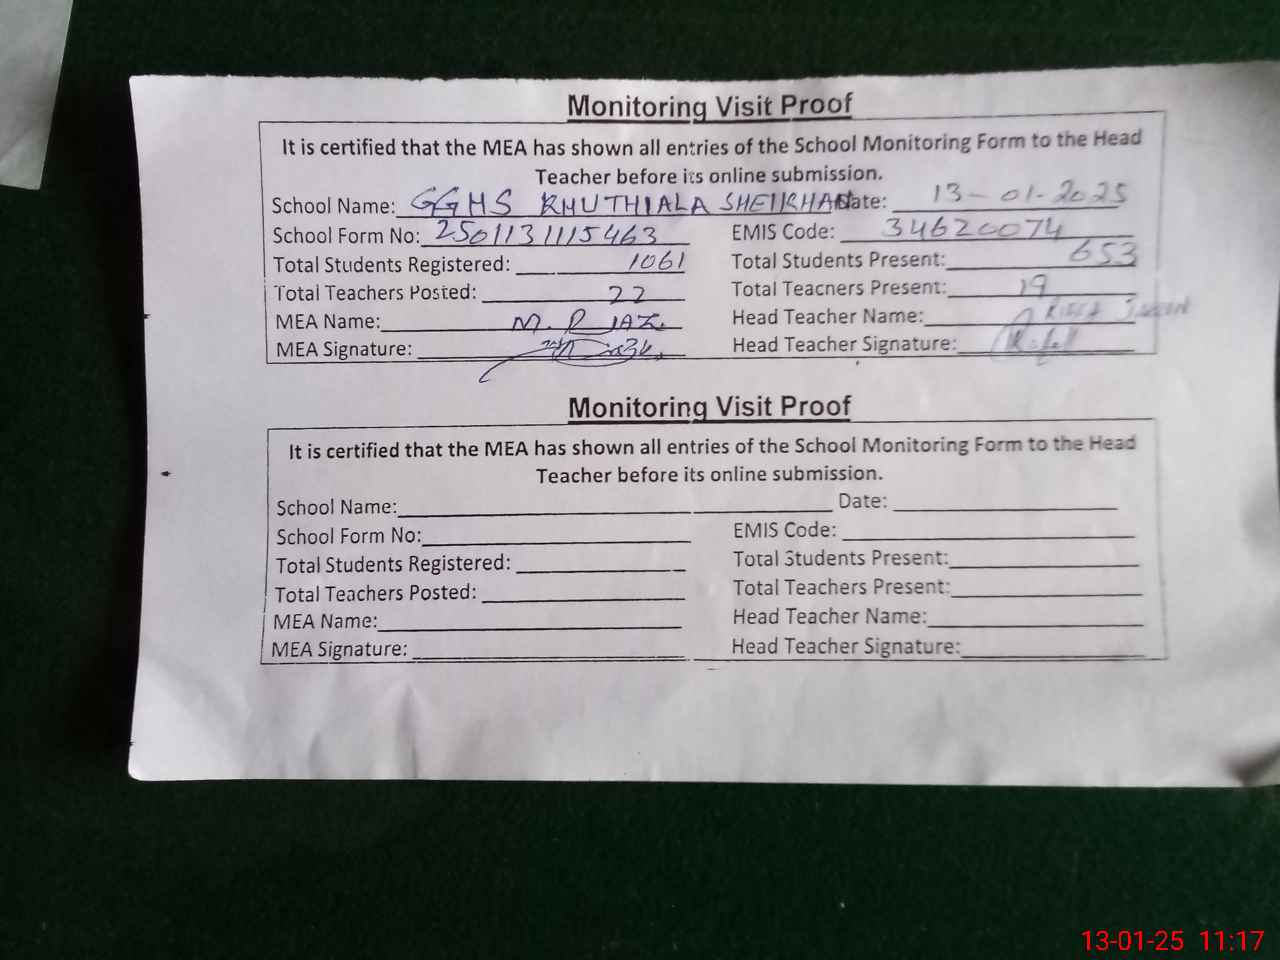 Monitoring Visit Proof
It is certified that the MEA has shown all entries of the School Monitoring Form to the Head
Teacher before its online submission.
School Name: GGHS KHUTHIALA SHEIKHAN Date: 13-01-2025
School Form No: 2501131115463 EMIS Code: 34620074
Total Students Registered: 1061 Total Students Present: 653
Total Teachers Posted: 22 Total Teachers Present: 19
MEA Name: M. RIAZ Head Teacher Name:
MEA Signature: Head Teacher Signature:
Monitoring Visit Proof
It is certified that the MEA has shown all entries of the School Monitoring Form to the Head
Teacher before its online submission.
School Name: Date:
School Form No: EMIS Code:
Total Students Registered: Total Students Present:
Total Teachers Posted: Total Teachers Present:
MEA Name: Head Teacher Name:
MEA Signature: Head Teacher Signature:
13-01-25 11:17